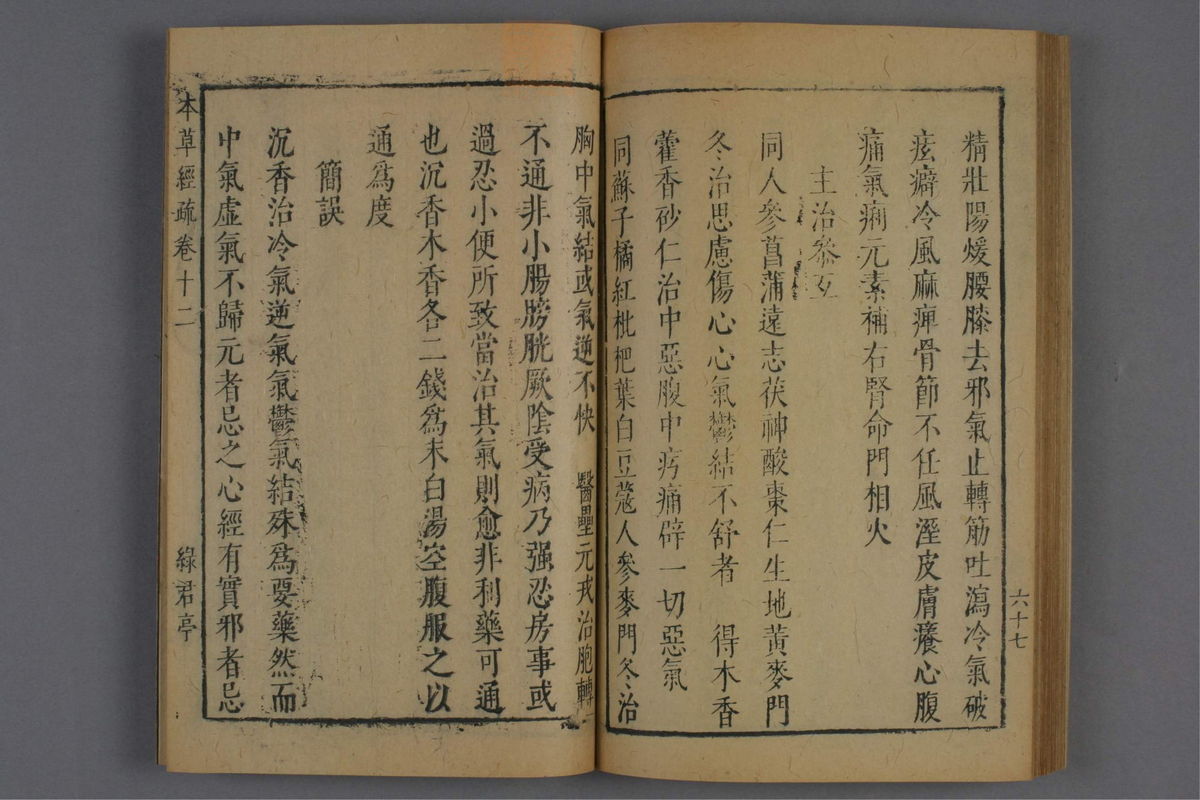 精壯陽煖腰膝去邪氣止轉筋吐瀉冷氣破
痃癖冷風麻痺骨節不任風溼皮膚癢心腹
痛氣痢元素補右腎命門相火
主治參互
同人參菖蒲遠志茯神酸棗仁生地黃麥門
冬治思慮傷心心氣鬱結不舒者 得木香
藿香砂仁治中惡腹中㽲痛辟一切惡氣
同蘇子橘紅枇杷葉白豆蔻人參麥門冬治
六十七
胸中氣結或氣逆不快 醫壘元戎治胞轉
不通非小腸膀胱厥陰受病乃强忍房事或
過忍小便所致當治其氣則愈非利藥可通
也沉香木香各二錢爲末白湯空腹服之以
通爲度
簡誤
沉香治冷氣逆氣氣鬱氣結殊爲要藥然而
中氣虛氣不歸元者忌之心經有實邪者忌
本草經疏卷十二
綠君亭